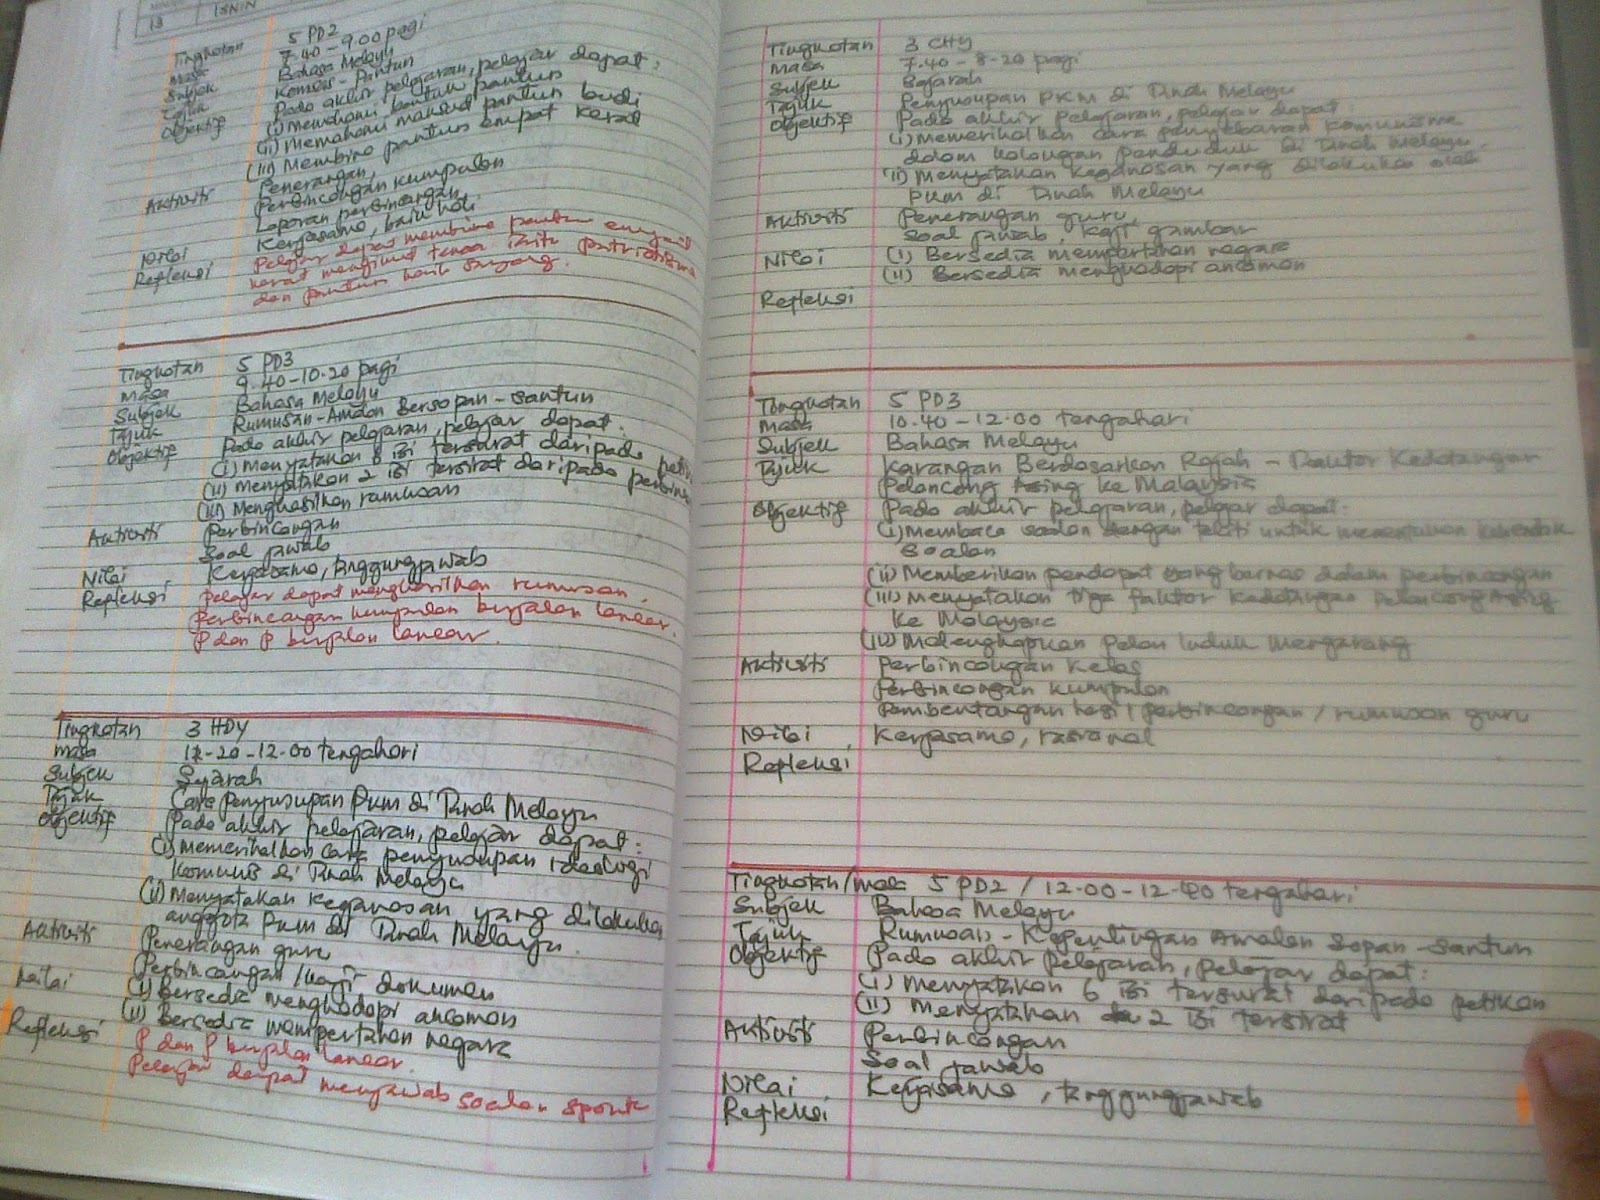 13 ISNIN
Tingkatan 5 PD2
Masa 7.40-9.00 pagi
Subjek Bahasa Melayu
Tajuk Komsas - Pantun
Objektif Pada akhir pelajaran, pelajar dapat:
(i) Memahami bentuk pantun
(ii) Memahami maksud pantun budi
(iii) Membina pantun empat kerat
Aktiviti Penerangan,
Perbincangan kumpulan
Laporan perbincangan
Nilai Kerjasama, baik hati
Refleksi Pelajar dapat membina pantun empat
kerat mengikut tema iaitu patriotisme
dan pantun kasih sayang.
Tingkatan 5 PD3
Masa 9.40-10.20 pagi
Subjek Bahasa Melayu
Tajuk Rumusan-Amalan Bersopan-santun
Objektif Pada akhir pelajaran, pelajar dapat:
(i) Menyatakan 8 isi tersurat daripada
(ii) Menyatakan 2 isi tersirat daripada
(iii) Menghasilkan rumusan
Aktiviti Perbincangan
Soal jawab
Nilai Kerjasama, tanggungjawab
Refleksi Pelajar dapat menghasilkan rumusan.
Perbincangan kumpulan berjalan lancar.
P dan P berjalan lancar.
Tingkatan 3 HDY
Masa 11-20-12-00 tengahari
Subjek Sejarah
Tajuk Cara Penyusupan PKM di Tanah Melayu
Objektif Pada akhir pelajaran, pelajar dapat:
(i) Memerihalkan cara penyusupan ideologi
Komunis di Tanah Melayu
(ii) Menyatakan keganasan yang dilakukan
anggota PKM di Tanah Melayu.
Aktiviti Penerangan guru
Perbincangan/kaji dokumen
Nilai (i) Bersedia menghadapi ancaman
(ii) Bersedia mempertahan negara
Refleksi P dan P berjalan lancar.
Pelajar dapat menjawab soalan
Tingkatan 3 CHY
Masa 7.40-8-20 pagi
Subjek Sejarah
Tajuk Penyusupan PKM di Tanah Melayu
Objektif Pada akhir pelajaran, pelajar dapat:
(i) Memerihalkan cara penyebaran komunisme
dalam kalangan penduduk di Tanah Melayu.
(ii) Menyatakan keganasan yang dilakukan oleh
PKM di Tanah Melayu
Aktiviti Penerangan guru,
Soal jawab, kaji gambar
Nilai (i) Bersedia mempertahan negara
(ii) Bersedia menghadapi ancaman
Refleksi
Tingkatan 5 PD3
Masa 10.40-12.00 tengahari
Subjek Bahasa Melayu
Tajuk Karangan Berdasarkan Rajah - Faktor Kedatangan
Pelancong Asing ke Malaysia
Objektif Pada akhir pelajaran, pelajar dapat:
(i) Membaca soalan dengan teliti untuk menentukan kehendak
soalan
(ii) Memberikan pendapat yang bernas dalam perbincangan
(iii) Menyatakan tiga faktor kedatangan pelancong Asing
ke Malaysia
(iv) Melengkapkan pelan induk mengarang
Aktiviti Perbincangan kelas
Perbincangan kumpulan
Pembentangan hasil perbincangan/rumusan guru
Nilai Kerjasama, rasional
Refleksi
Tingkatan/masa 5 PD2 / 12-00-12-40 tengahari
Subjek Bahasa Melayu
Tajuk Rumusan - Kepentingan Amalan Sopan-Santun
Objektif Pada akhir pelajaran, pelajar dapat:
(i) Menyatakan 6 isi tersurat daripada petikan
(ii) Menyatakan 2 isi tersirat
Aktiviti Perbincangan
Soal jawab
Nilai Kerjasama, tanggungjawab
Refleksi